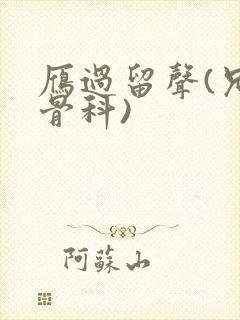 雁過留聲(兄
骨科)
阿蘇山